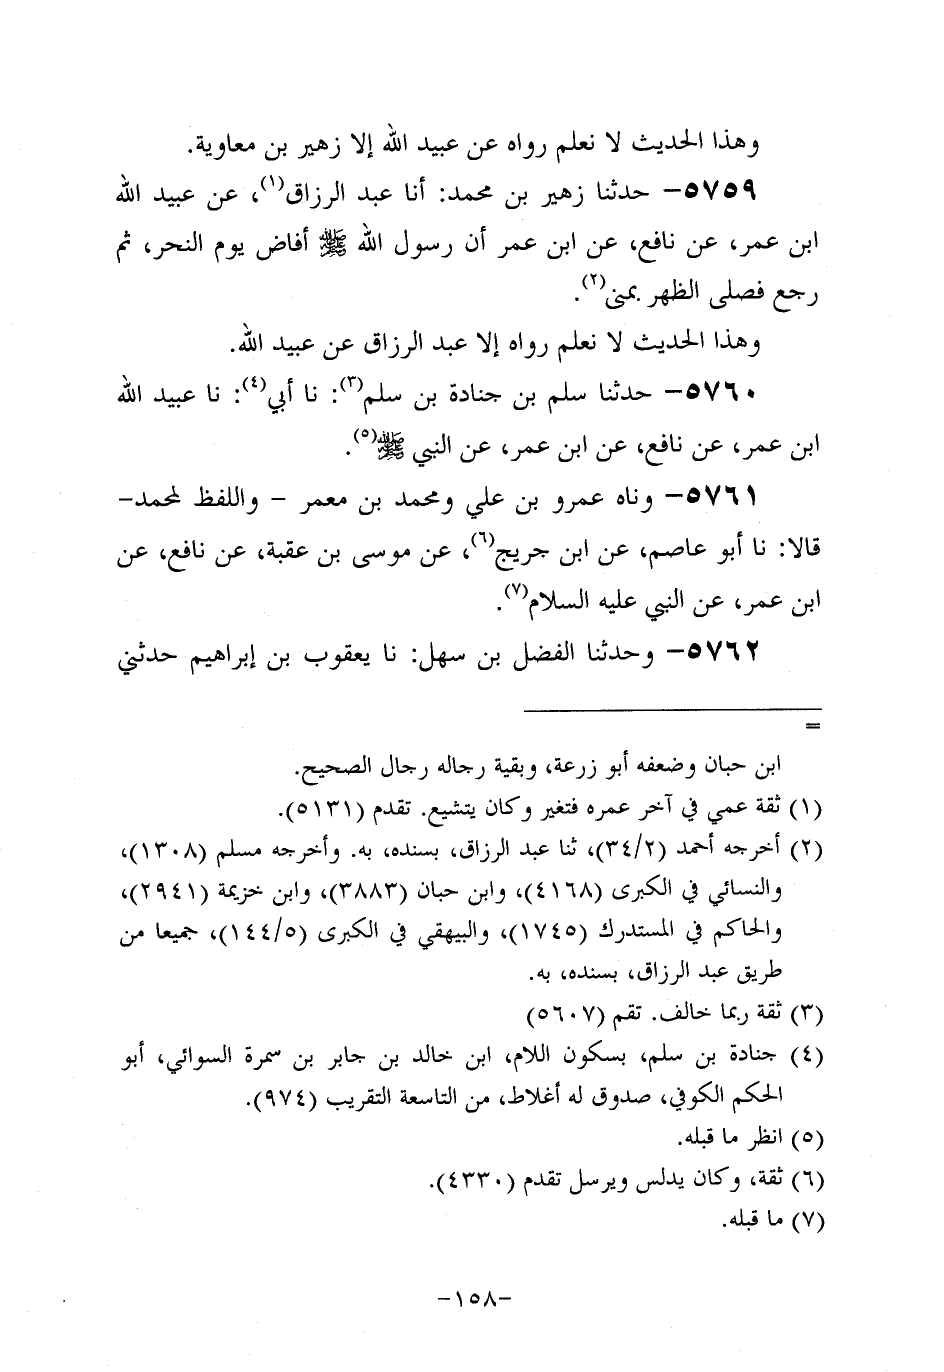 وهذا الحديث لا نعلم رواه عن عبيد الله إلا زهير بن معاوية.
٥٧٥٩- حدثنا زهير بن محمد: أنا عبد الرزاق(١)، عن عبيد الله
ابن عمر، عن نافع، عن ابن عمر أن رسول الله ﷺ أفاض يوم النحر، ثم
رجع فصلى الظهر بمنى(٢).
وهذا الحديث لا نعلم رواه إلا عبد الرزاق عن عبيد الله.
٥٧٦٠- حدثنا سلم بن جنادة بن سلم(٣): نا أبي(٤): نا عبيد الله
ابن عمر، عن نافع، عن ابن عمر، عن النبي ﷺ(٥).
٥٧٦١- وناه عمرو بن علي ومحمد بن معمر - واللفظ لمحمد-
قالا: نا أبو عاصم، عن ابن جريج(٦)، عن موسى بن عقبة، عن نافع، عن
ابن عمر، عن النبي عليه السلام(٧).
٥٧٦٢- وحدثنا الفضل بن سهل: نا يعقوب بن إبراهيم حدثني
=
ابن حبان وضعفه أبو زرعة، وبقية رجاله رجال الصحيح.
(١) ثقة عمي في آخر عمره فتغير وكان يتشيع. تقدم (٥١٣١).
(٢) أخرجه أحمد (٣٤/٢)، ثنا عبد الرزاق، بسنده، به. وأخرجه مسلم (١٣٠٨)،
والنسائي في الكبرى (٤١٦٨)، وابن حبان (٣٨٨٣)، وابن خزيمة (٢٩٤١)،
والحاكم في المستدرك (١٧٤٥)، والبيهقي في الكبرى (١٤٤/٥)، جميعا من
طريق عبد الرزاق، بسنده، به.
(٣) ثقة ربما خالف. تقم (٥٦٠٧)
(٤) جنادة بن سلم، بسكون اللام، ابن خالد بن جابر بن سمرة السوائي، أبو
الحكم الكوفي، صدوق له أغلاط، من التاسعة التقريب (٩٧٤).
(٥) انظر ما قبله.
(٦) ثقة، وكان يدلس ويرسل تقدم (٤٣٣٠).
(٧) ما قبله.
-١٥٨-